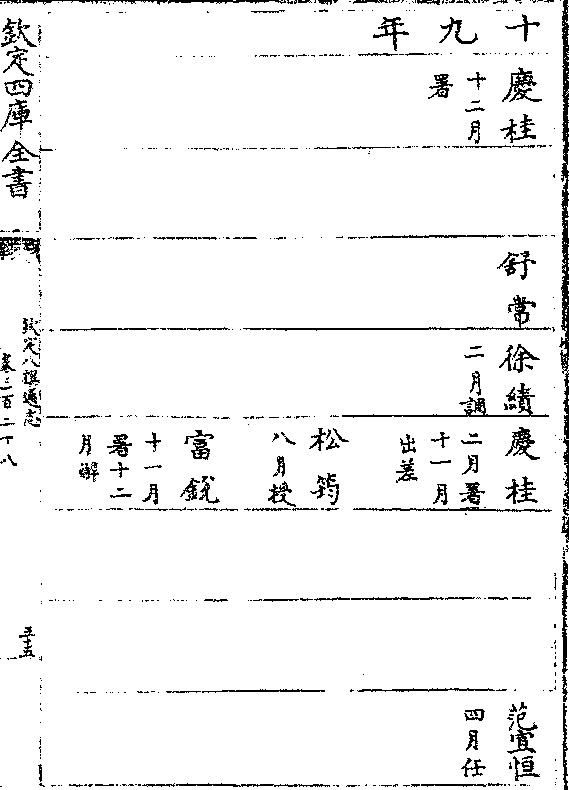 十九年
慶桂
十二月
署
舒常
徐績
二月調
慶桂
二月署
十一月
出差
松筠
八月授
富銳
十一月
署十二
月解
范宜恒
四月任
欽定四庫全書
欽定八旗通志
卷三百二十八
五